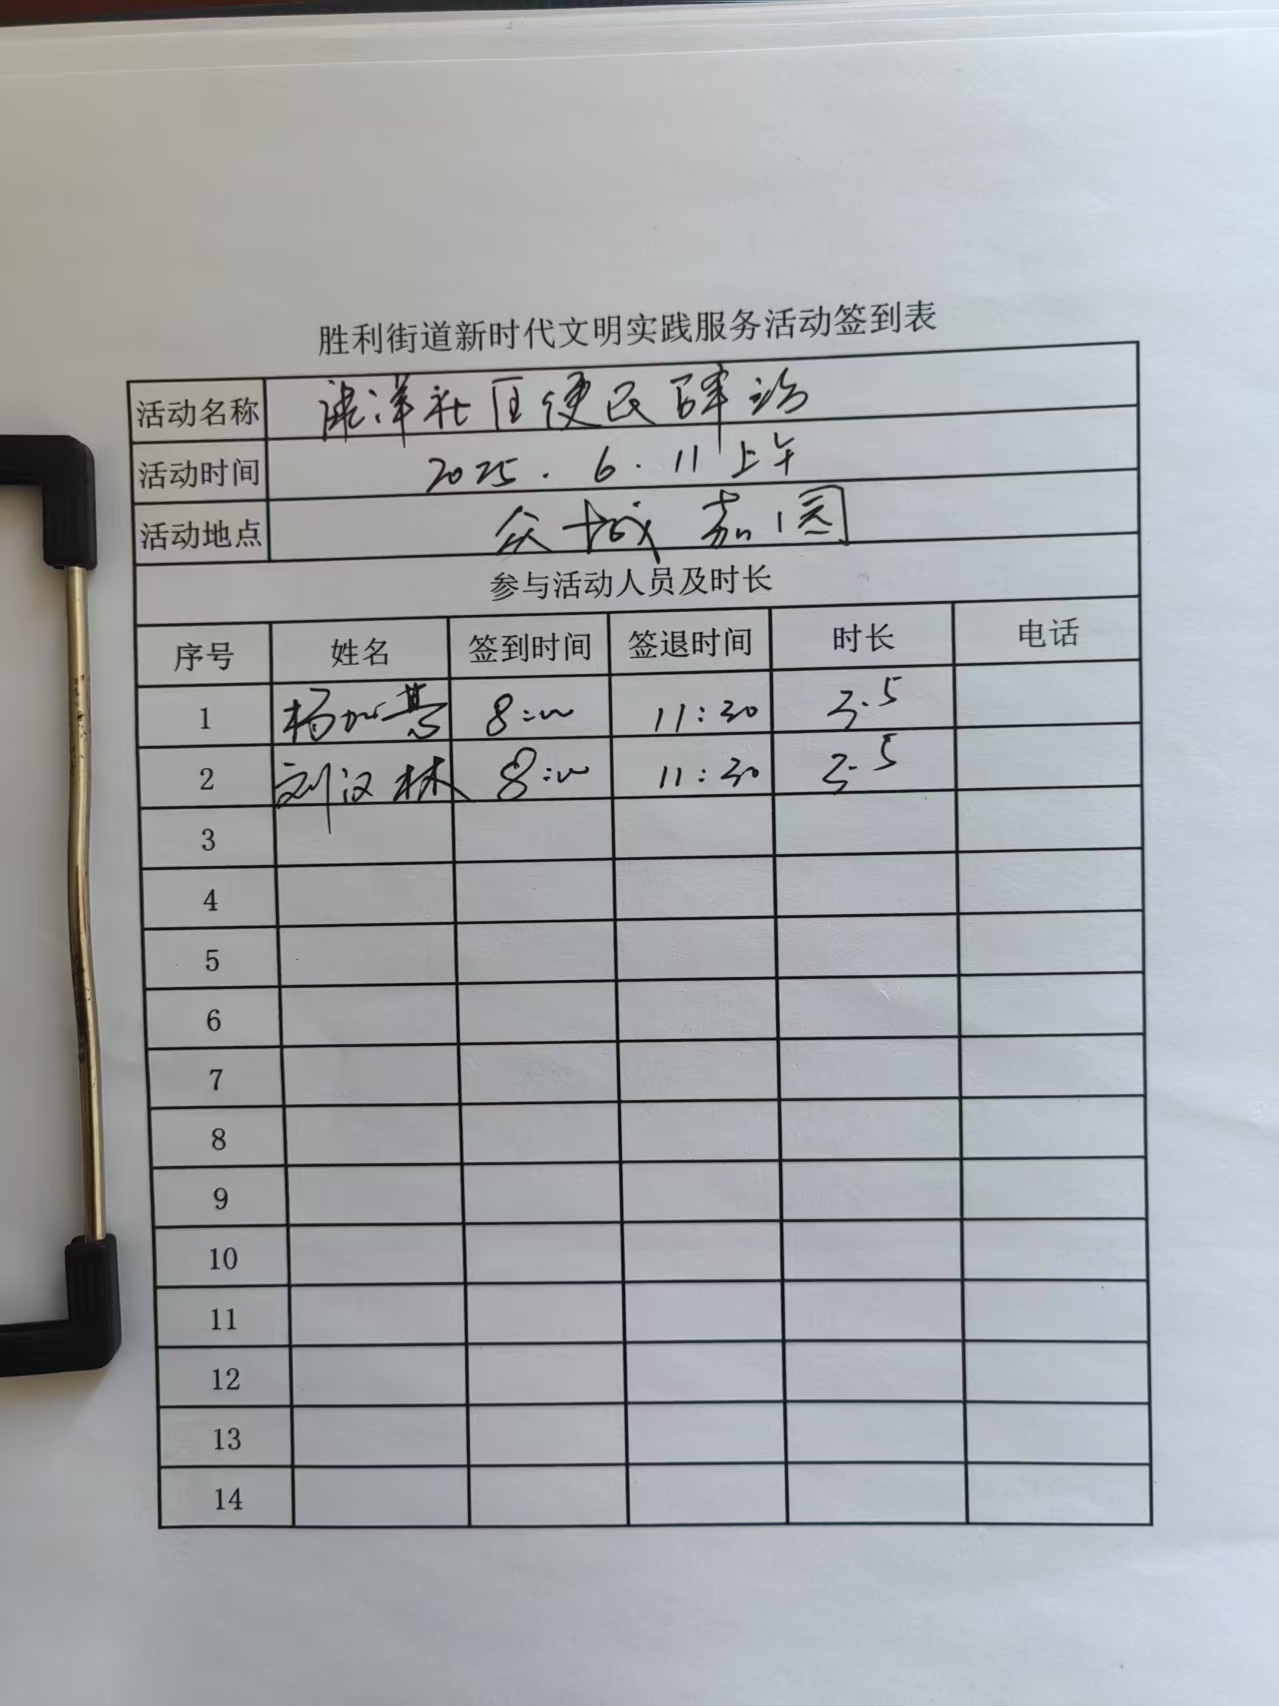 胜利街道新时代文明实践服务活动签到表
活动名称 洋社区便民驿站
活动时间 2025.6.11上午
活动地点 众城嘉园
参与活动人员及时长
序号 姓名 签到时间 签退时间 时长 电话
1 杨 8:00 11:30 3.5
2 刘汉林 8:00 11:30 3.5
3
4
5
6
7
8
9
10
11
12
13
14